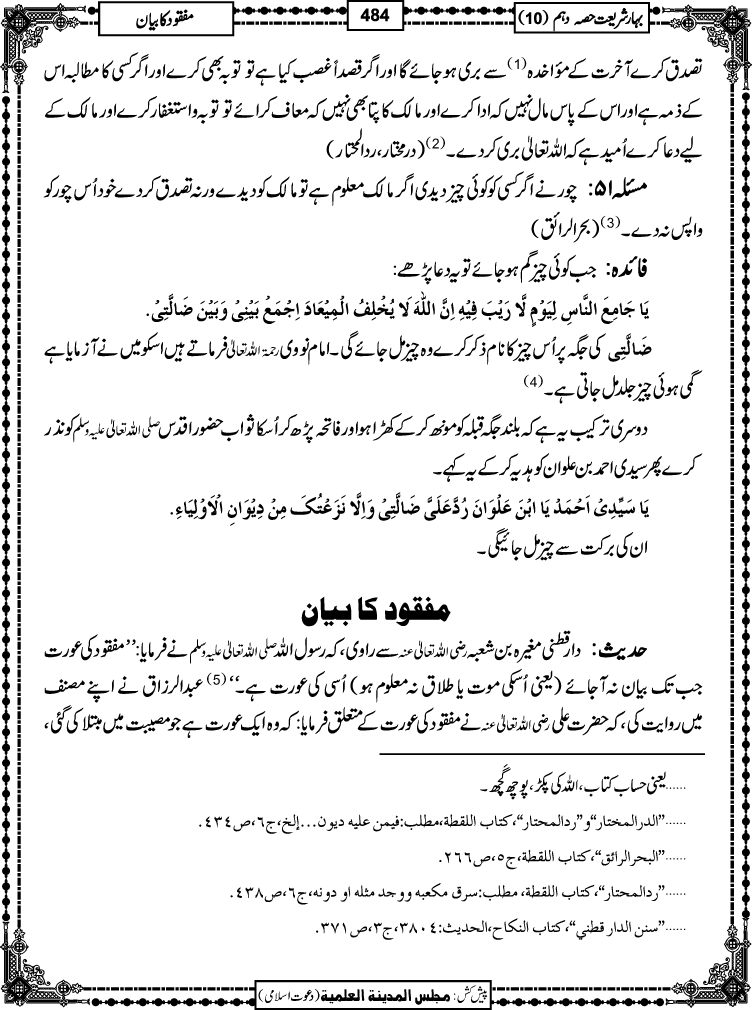 بہار شریعت حصہ دہم (10)
484
مفقود کا بیان
تصدق کرے آخرت کے مؤاخذہ (1) سے بری ہو جائے گا اور اگر قصداً غصب کیا ہے تو توبہ بھی کرے اور اگر کسی کا مطالبہ اس
کے ذمہ ہے اور اس کے پاس مال نہیں کہ ادا کرے اور مالک کا پتا بھی نہیں کہ معاف کرائے تو توبہ و استغفار کرے اور مالک کے
لیے دعا کرے اُمید ہے کہ اللہ تعالیٰ بری کردے۔(2) (درمختار، ردالمحتار)
مسئلہ ۵۱: چور نے اگر کسی کو کوئی چیز دیدی اگر مالک معلوم ہے تو مالک کو دیدے ورنہ تصدق کردے خود اُس چور کو
واپس نہ دے۔(3) (بحرالرائق)
فائدہ: جب کوئی چیز گم ہو جائے تو یہ دعا پڑھے:
یَا جَامِعَ النَّاسِ لِیَوْمٍ لَّا رَیْبَ فِیْہِ اِنَّ اللّٰہَ لَا یُخْلِفُ الْمِیْعَادَ اِجْمَعْ بَیْنِیْ وَبَیْنَ ضَالَّتِیْ.
ضَالَّتِی کی جگہ پر اُس چیز کا نام ذکر کرے وہ چیز مل جائے گی۔ امام نووی رحمۃ اللہ تعالیٰ فرماتے ہیں اسکو میں نے آزمایا ہے
گمی ہوئی چیز جلد مل جاتی ہے۔(4)
دوسری ترکیب یہ ہے کہ بلند جگہ قبلہ کو مونھ کرکے کھڑا ہو اور فاتحہ پڑھ کر اُسکا ثواب حضور اقدس صلی اللہ تعالیٰ علیہ وسلم کو نذر
کرے پھر سیدی احمد بن علوان کو ہدیہ کرکے یہ کہے۔
یَا سَیِّدِیْ اَحْمَدُ یَا ابْنَ عَلْوَانَ رُدَّعَلَیَّ ضَالَّتِیْ وَاِلَّا نَزَعْتُکَ مِنْ دِیْوَانِ الْاَوْلِیَاءِ.
ان کی برکت سے چیز مل جائیگی۔
مفقود کا بیان
حدیث: دارقطنی مغیرہ بن شعبہ رضی اللہ تعالیٰ عنہ سے راوی، کہ رسول اللہ صلی اللہ تعالیٰ علیہ وسلم نے فرمایا: ’’مفقود کی عورت
جب تک بیان نہ آجائے (یعنی اُسکی موت یا طلاق نہ معلوم ہو) اُسی کی عورت ہے۔‘‘ (5) عبدالرزاق نے اپنے مصنف
میں روایت کی، کہ حضرت علی رضی اللہ تعالیٰ عنہ نے مفقود کی عورت کے متعلق فرمایا: کہ وہ ایک عورت ہے جو مصیبت میں مبتلا کی گئی،
......یعنی حساب کتاب، اللہ کی پکڑ، پوچھ گچھ۔
......”الدرالمختار“و”ردالمحتار“،کتاب اللقطة،مطلب:فیمن علیہ دیون...إلخ،ج٦،ص٤٣٤.
......”البحرالرائق“،کتاب اللقطة،ج٥،ص٢٦٦.
......”ردالمحتار“،کتاب اللقطة، مطلب:سرق مکعبہ ووجد مثلہ او دونہ،ج٦،ص٤٣٨.
......”سنن الدار قطني“،کتاب النکاح،الحدیث:٣٨٠٤،ج٣،ص٣٧١.
پیش کش: مجلس المدينة العلمية (دعوت اسلامی)